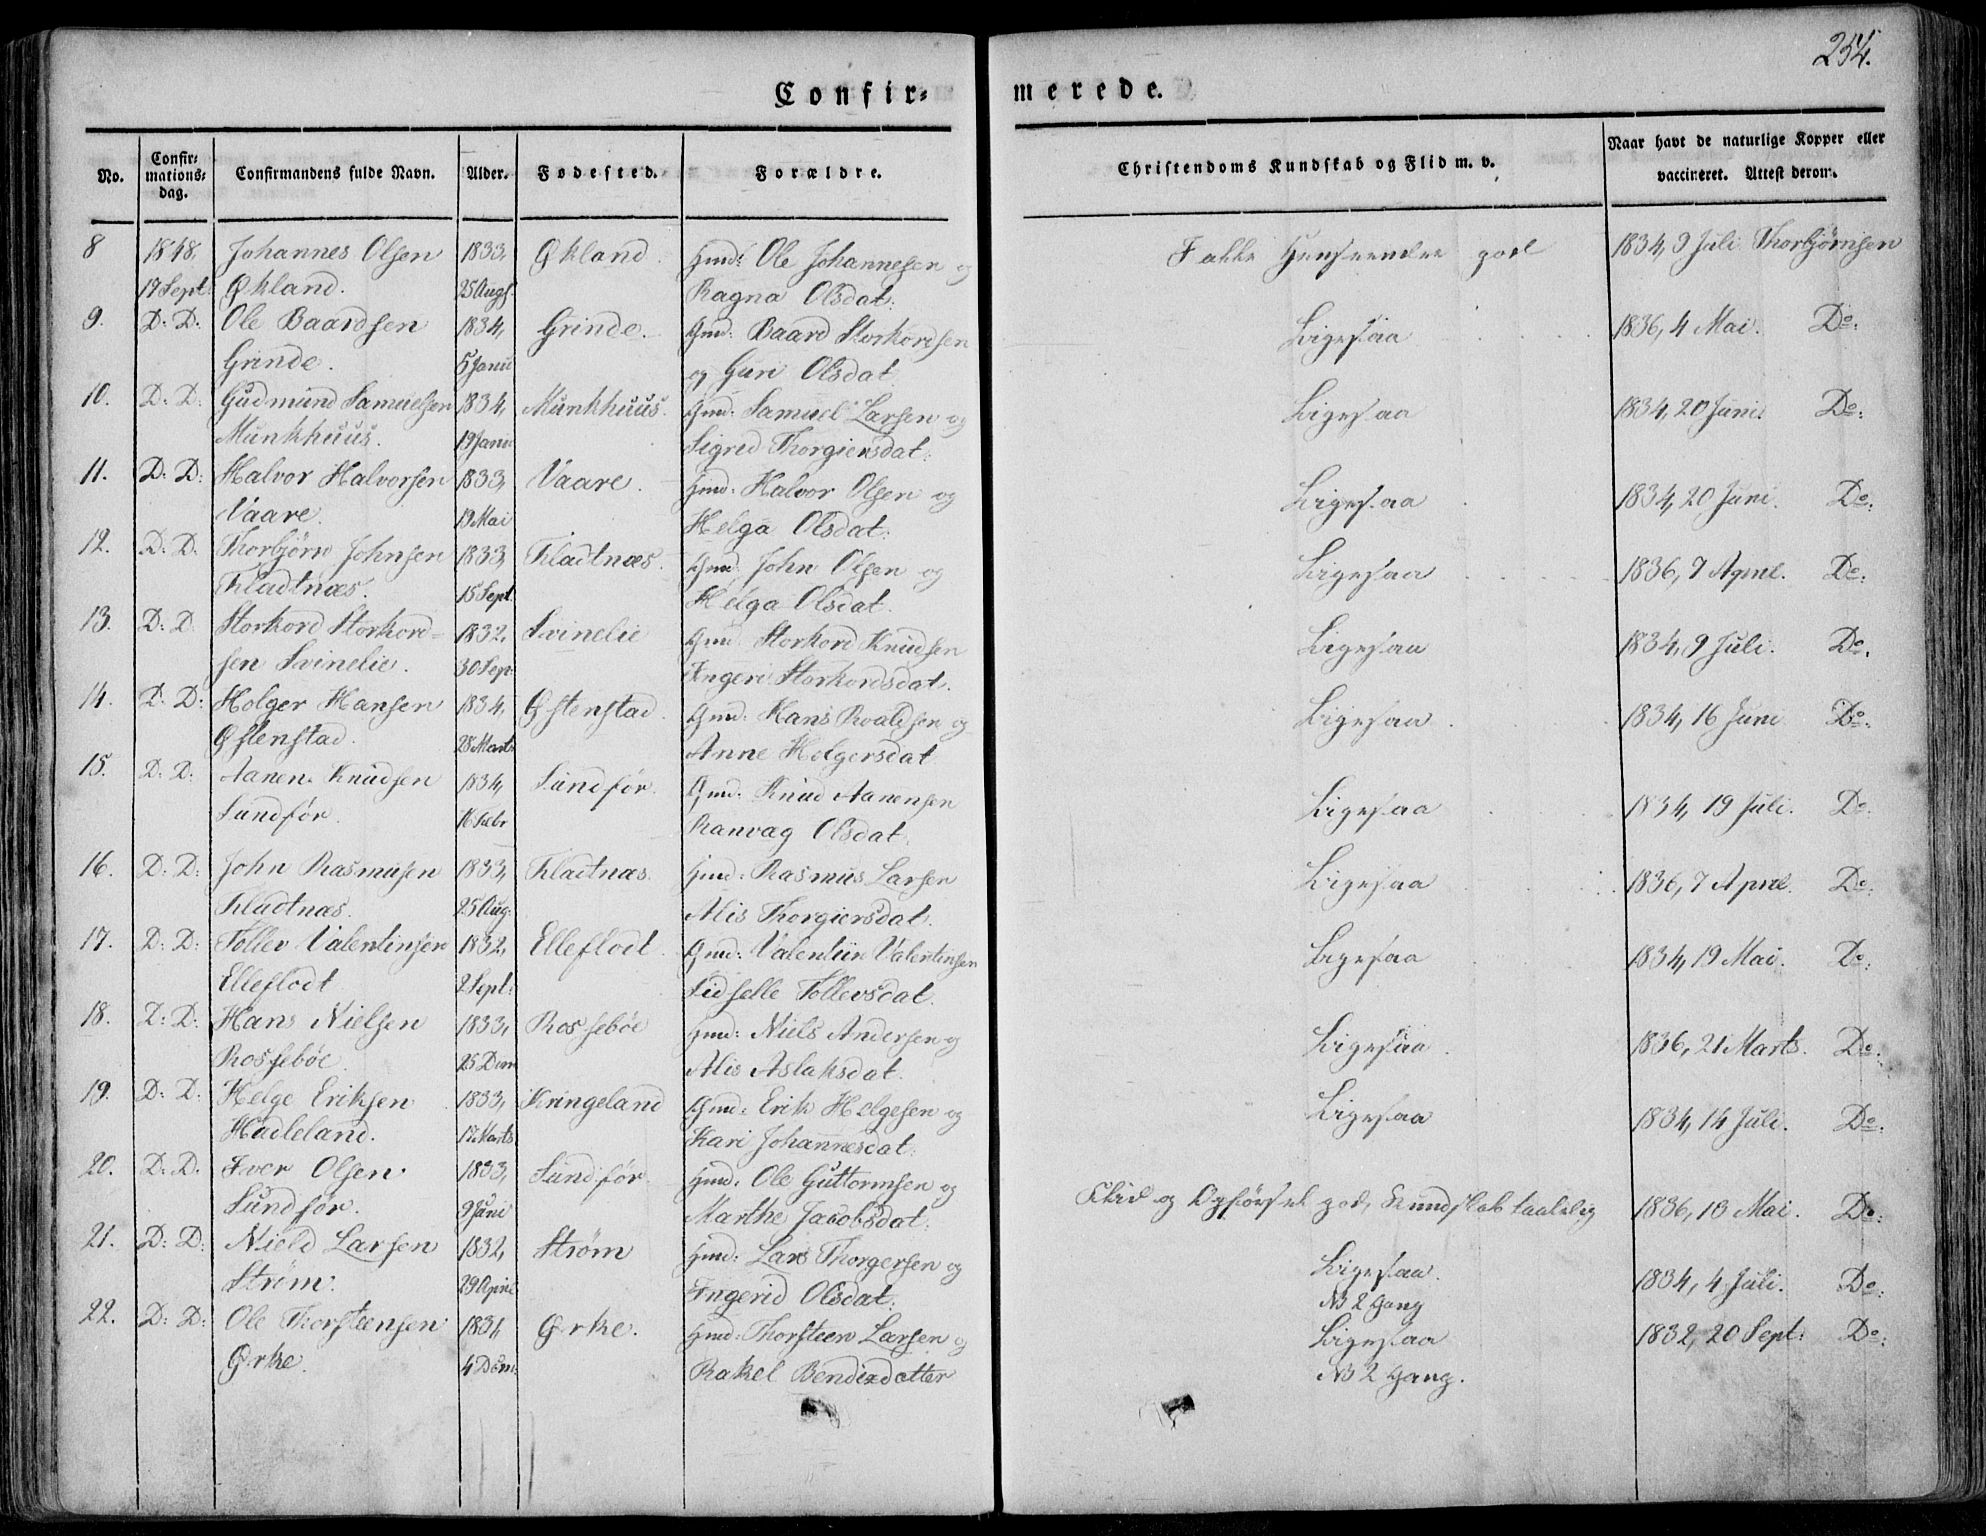 254.
Confir=
merede.
No.
Confir=
mations=
dag.
Confirmandens fulde Navn.
Alder.
Fødested.
Forældre.
Christendoms Kundskab og Flid m. v.
Naar havt de naturlige Kopper eller
vaccineret. Attest derom.
8 1848, Johannes Olsen 1833, Økland. Gmd: Ole Johannesen og I alle Henseender god 1834, 9 Juli Thorbjørnsen
17 Sept Økland. 25 Augs. Ragna Olsdat:
9. D: D: Ole Baardsen 1834, Grinde. Gmd: Baard Storkordsen Ligesaa 1836, 4 Mai. Do:
Grinde. 5 Janu og Guri Olsdat
10. D: D: Gudmund Samuelsen 1834, Munkhuus. Gmd: Samuel Larsen og Ligesaa 1834, 20 Juni Do:
Munkhuus. 19 Janu Sigred Thorgiersdat:
11. D: D: Halvor Halvorsen 1833, Vaare. Gmd: Halvor Olsen og Ligesaa 1834, 20 Juni. Do:
Vaare. 19 Mai Helga Olsdat:
12. D: D. Thorbjørn Johnsen 1833, Fladtnæs. Gmd. John Olsen og Ligesaa 1836, 7 April. Do:
Fladtnæs. 15 Sept. Helga Olsdat.
13. D: D. Storkord Storkord= 1832, Svinelie Gmd Storkord Knudsen Ligesaa 1834, 9 Juli. Do.
sen Svinelie. 30 Sep Ingeri Storkordsdat.
14. D: D: Holger Hansen 1834, Østenstad Gmd: Hans Roaldsen og Ligesaa 1834, 16 Juni Do.
Østenstad. 28 Marts Anne Holgersdat
15. D: D: Aanen Knudsen 1834, Sundfør. Gmd: Knud Aanensen Ligesaa 1834, 19 Juli. Do.
Sundfør. 16 Febr Ranvag Olsdat.
16. D: D: John Rasmusen 1833, Fladtnæs. Gmd: Rasmus Larsen Ligesaa 1836, 7 April. Do:
Fladtnæs. 25 Aug: Alis Thorgiersdat.
17. D: D: Tollev Valentinsen 1832, Elleflodt. Gmd: Valentiin Valentinsen Ligesaa 1834, 19 Mai. Do:
Elleflodt 2 Sept: Sidselle Tollevsdat.
18. D: D: Hans Nielsen 1833, Rossebøe Gmd: Niels Andersen og Ligesaa 1836, 21 Marts. Do:
Rossebøe. 25 Alis Aslaksdat.
19. D: D: Helge Eriksen 1833, Kringeland Gmd: Erik Helgesen og Ligesaa 1834, 14 Juli. Do:
Hadleland. 17 Marts Kari Johannesdat:
20. D: D. Iver Olsen 1833, Sundfør. Gmd. Ole Guttormsen og Flid og Opførsel god, Kundskab taalelig 1836, 13 Mai. Do:
Sundfør. 9 Juni Marthe Jacobsdat:
21. D: D: Nield Larsen 1832, Strøm Gmd: Lars Thorgersen og Ligesaa. 1834, 4 Juli. Do:
Strøm. 29 April Ingerid Olsdat: NB 2 Gang
22. D: D: Ole Thorsteensen 1831 Ørke. Gmd: Thorsteen Larsen og Ligesaa 1832, 20 Sept: Do:
Ørke. 4 Rakel Bendixdatter NB 2 Gang.